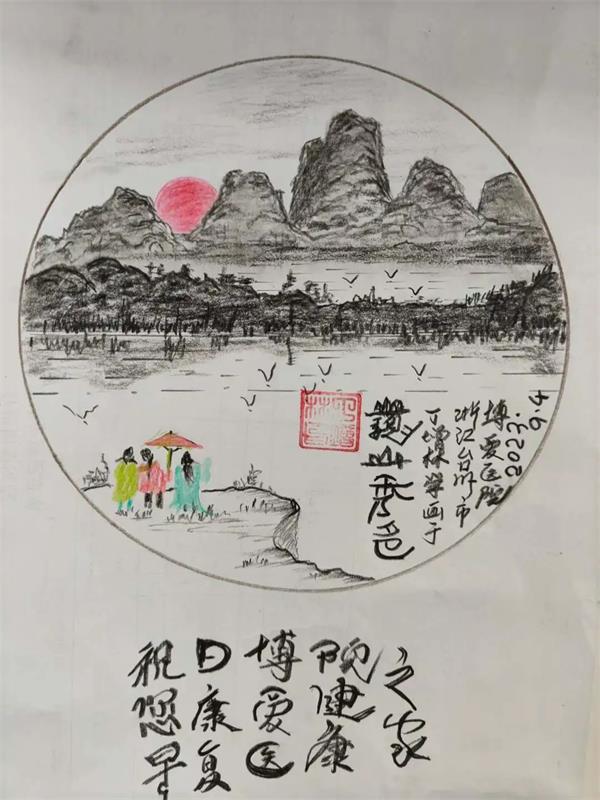 山秀色
丁林学画于
浙江台州市
博爱医院
2023.
9.4
祝您早
日康复
博爱医
院健康
之家